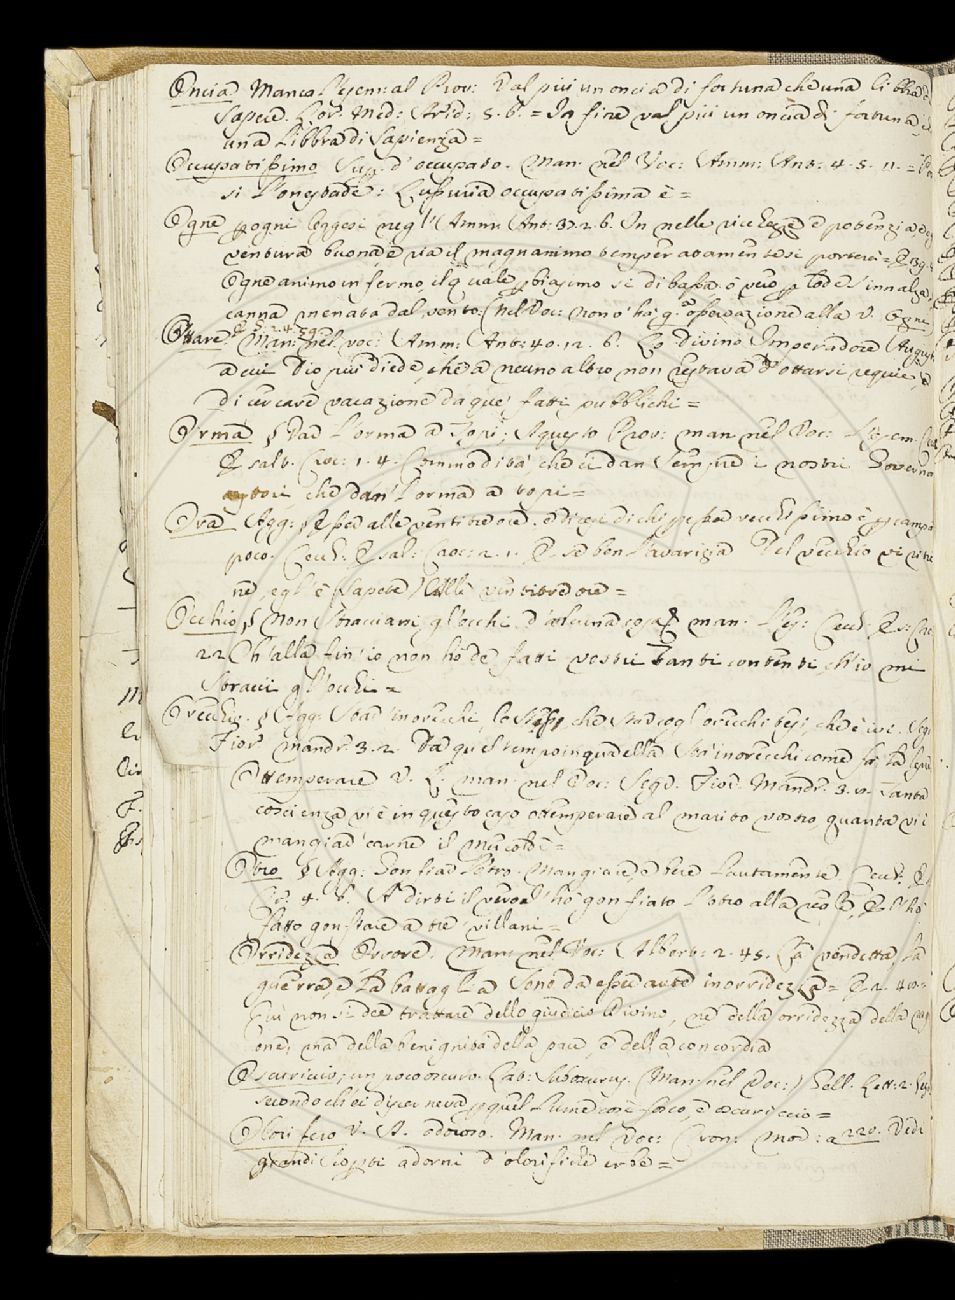 Oncia Manca l'esem: al Prov: Val più un oncia di fortuna che una libbra di
sapere. Lor: Med: Arid: 5. 6. = In fine val più un oncia di fortuna, ch
una Libbra di Sapienza =
Occupatissimo Sup. d'occupato. Man. nel Voc: Amm: Ant: 4. 5. 11. =
si l'onestade: Lussuria occupatissima è =
Ogne p ogni leggesi negl' Amm: Ant: 30. 2. 6. In nelle ricchezze e potenzia
ventura buona, e via il magnanimo temperatamente si porterà =
Ogne animo infermo, il quale p biasimo si dibassa, e vero p lode s'innalza,
canna menata dal vento. (Nel Voc: non v'ha q. osservazione alla V. Ogne
Ottare Man: nel voc: Amm: Ant: 40. 12. 6. Lo Divino Imperadore August
a cui Dio più diede, che a neuno altro non restava d'ottarsi requie e
di cercare vacazione da que' fatti pubblichi =
Orma § Dar l'orma a Topi; A questo Prov: man. nel Voc: l'Esem.
Esalt. Croc: 1. 4. Commodità che ci dan sempre i nostri Governa
che dan' l'orma a topi =
Ora Agg: alle ventitre ore. e dicesi di chi p esser vecchissimo è p campar
poco. Cecch: Esal: Croc: 2. 1. E se ben l'avarizia Del vecchio vi
ne, egl' è sapete Alle ventitre ore =
Occhio § Non stracciarsi gl'occhi d'alcuna cosa man. l'es: Cecch:
2 2 Ch'alla fin' io non ho de' fatti vostri Tanti contenti, ch'io mi
Stracci gl'occhi =
Orecchi. § Agg: Star in orecchi, lo stesso che star cogl' orecchi tesi, che è ivi. Segr
Fior: Mandr: 3. 2. Da quel tempo in qua ella sta in orecchi come fa la lepre
Ottemperare V. L. man. nel Voc: Segr. Fior. Mandr. 3. 11. Tanta
coscienza vi è in questo caso ottemperare al marito vostro quanta vi è
mangiar carne il Mercoledì =
Otro § Agg: Gonfiar l'otro. Mangiare, e bere lautamente. Cecch:
4. 6. A dirti il vero l'ho gonfiato l'otro alla reale, E l'ho
fatto gonfiare a tre villani =
Orridezza Orrore. Man: nel Voc: Albert: 2. 45. La vendetta, la
guerra, e la battaglia sono da essere avute in orridezza = E 2. 40.
Qui non si dee trattare dello giudicio Divino, ne della orridezza della
one, ma della benignità della pace, e della concordia
Oscuriccio; un poco oscuro. Lat: Subobscurus. Man: nel Voc: Gell. Lett: 2.
secondo chi ei diceva p quel lume così fosco, e oscuriccio =
Olorifero V. A. odoroso. Man. nel Voc: Cron: Mor: a 220. Vedi
grandi adorni d'olorifere erbe =